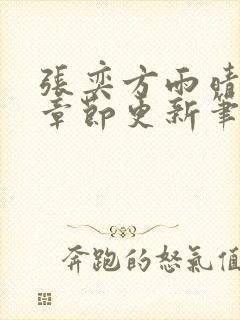 張奕方雨晴
章節更新筆
奔跑的怒氣值